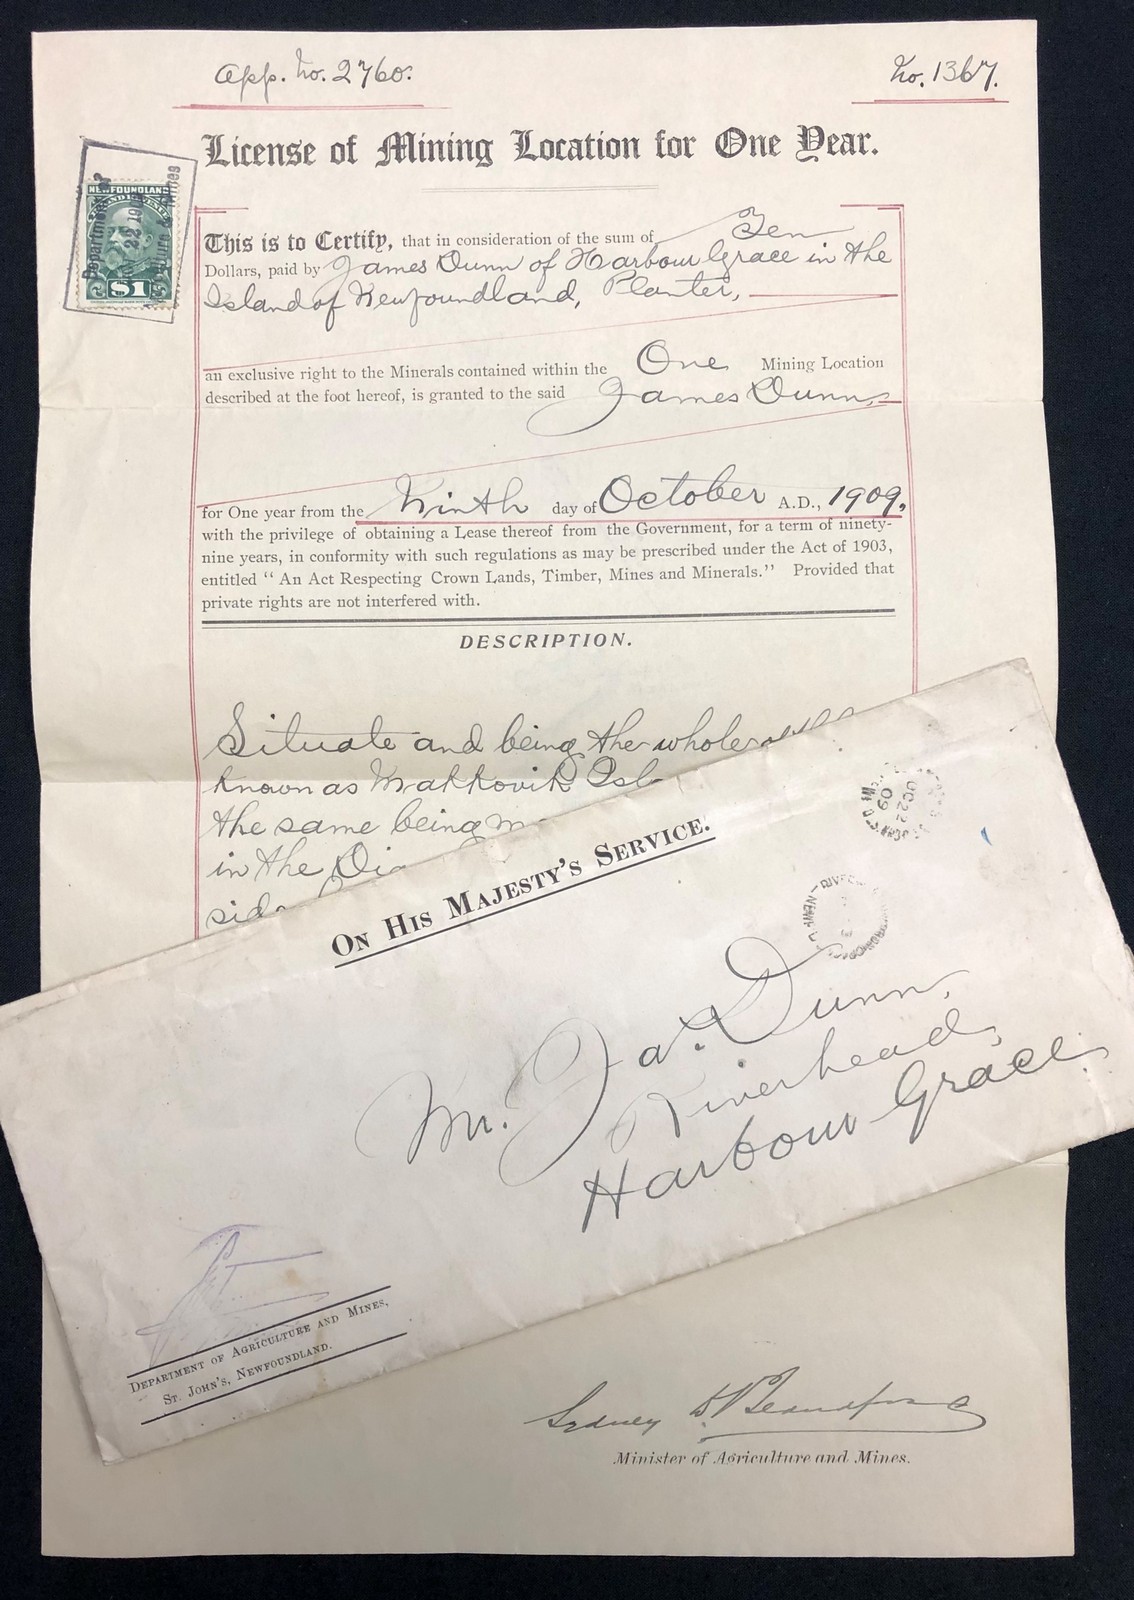 App. No. 2760.
No. 1367.
License of Mining Location for One Year.
NEWFOUNDLAND
$1
Department of
Agriculture & Mines
This is to Certify, that in consideration of the sum of Ten
Dollars, paid by James Dunn of Harbour Grace in the
Island of Newfoundland, Planter,
an exclusive right to the Minerals contained within the One Mining Location
described at the foot hereof, is granted to the said James Dunn,
for One year from the Ninth day of October A.D., 1909,
with the privilege of obtaining a Lease thereof from the Government, for a term of ninety-
nine years, in conformity with such regulations as may be prescribed under the Act of 1903,
entitled "An Act Respecting Crown Lands, Timber, Mines and Minerals." Provided that
private rights are not interfered with.
DESCRIPTION.
Situate and being the whole of
known as Makkovik
the same being
in the
ON HIS MAJESTY'S SERVICE.
OC 22
09
Mr. Jas. Dunn,
Riverhead,
Harbour Grace.
DEPARTMENT OF AGRICULTURE AND MINES,
ST. JOHN'S, NEWFOUNDLAND.
Sydney D Blandford
Minister of Agriculture and Mines.